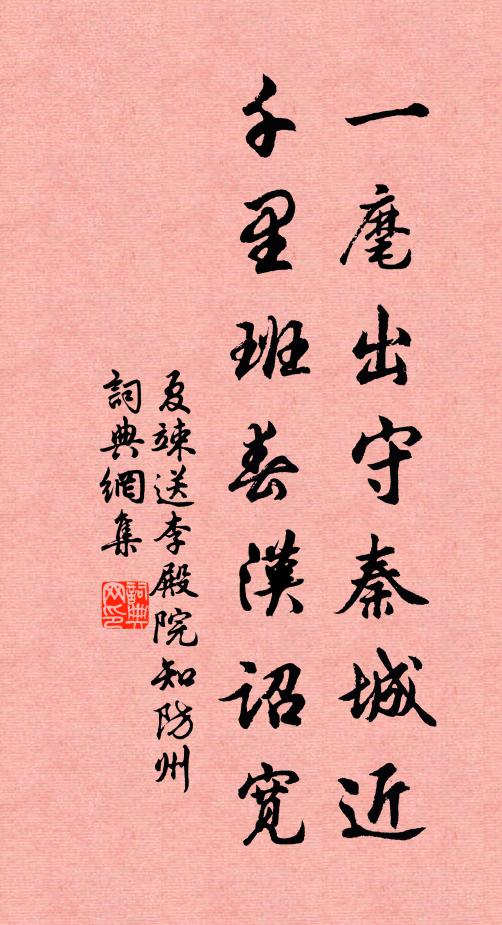 一麾出守秦城近
千里班春漢詔寬
夏竦送李殿院知防州
詞典網集
詞典網印